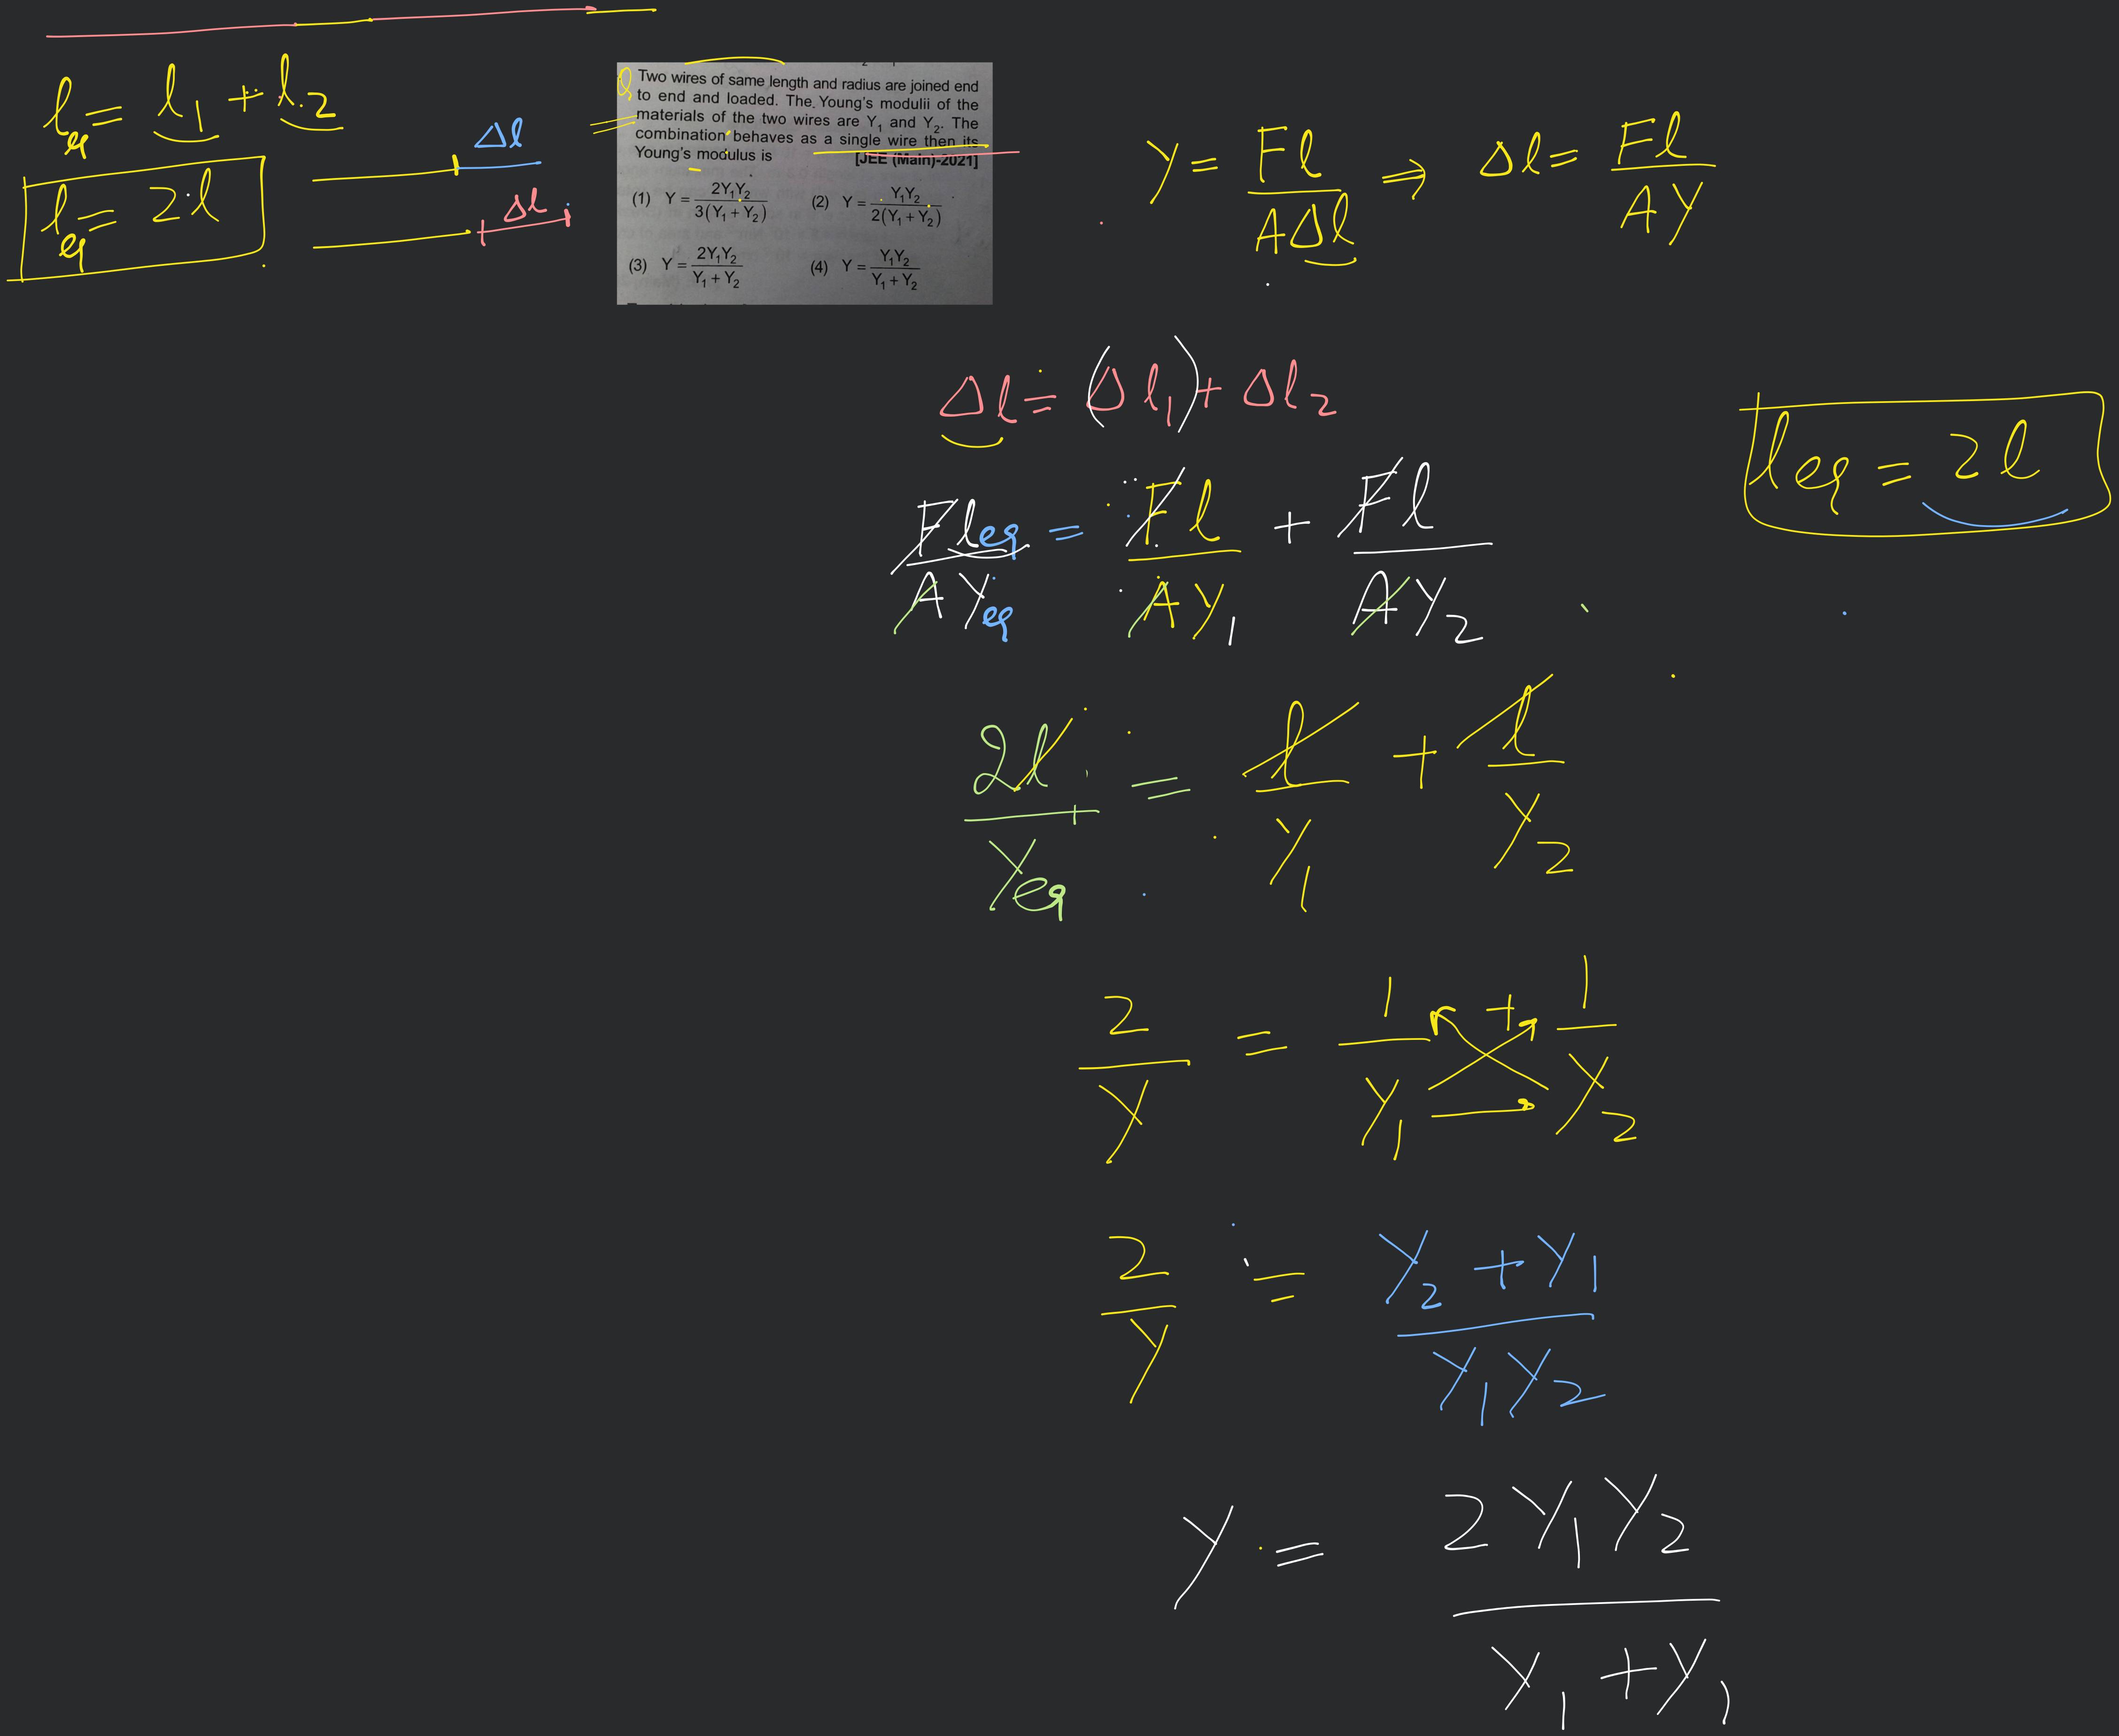 l_eq = l₁ + l₂
l_eq = 2l
Δl
Δl
Q Two wires of same length and radius are joined end
to end and loaded. The Young's modulii of the
materials of the two wires are Y₁ and Y₂. The
combination behaves as a single wire then its
Young's modulus is [JEE (Main)-2021]
(1) Y = 2Y₁Y₂ / 3(Y₁ + Y₂) (2) Y = Y₁Y₂ / 2(Y₁ + Y₂)
(3) Y = 2Y₁Y₂ / Y₁ + Y₂ (4) Y = Y₁Y₂ / Y₁ + Y₂
Y = Fl / AΔl ⇒ Δl = Fl / AY
Δl = (Δl₁) + Δl₂
l_eq = 2l
Fl_eq / AY_eq = Fl / AY₁ + Fl / AY₂
2l / Y_eq = l / Y₁ + l / Y₂
2 / Y = 1 / Y₁ + 1 / Y₂
2 / Y = Y₂ + Y₁ / Y₁Y₂
Y = 2Y₁Y₂ / Y₁ + Y₁